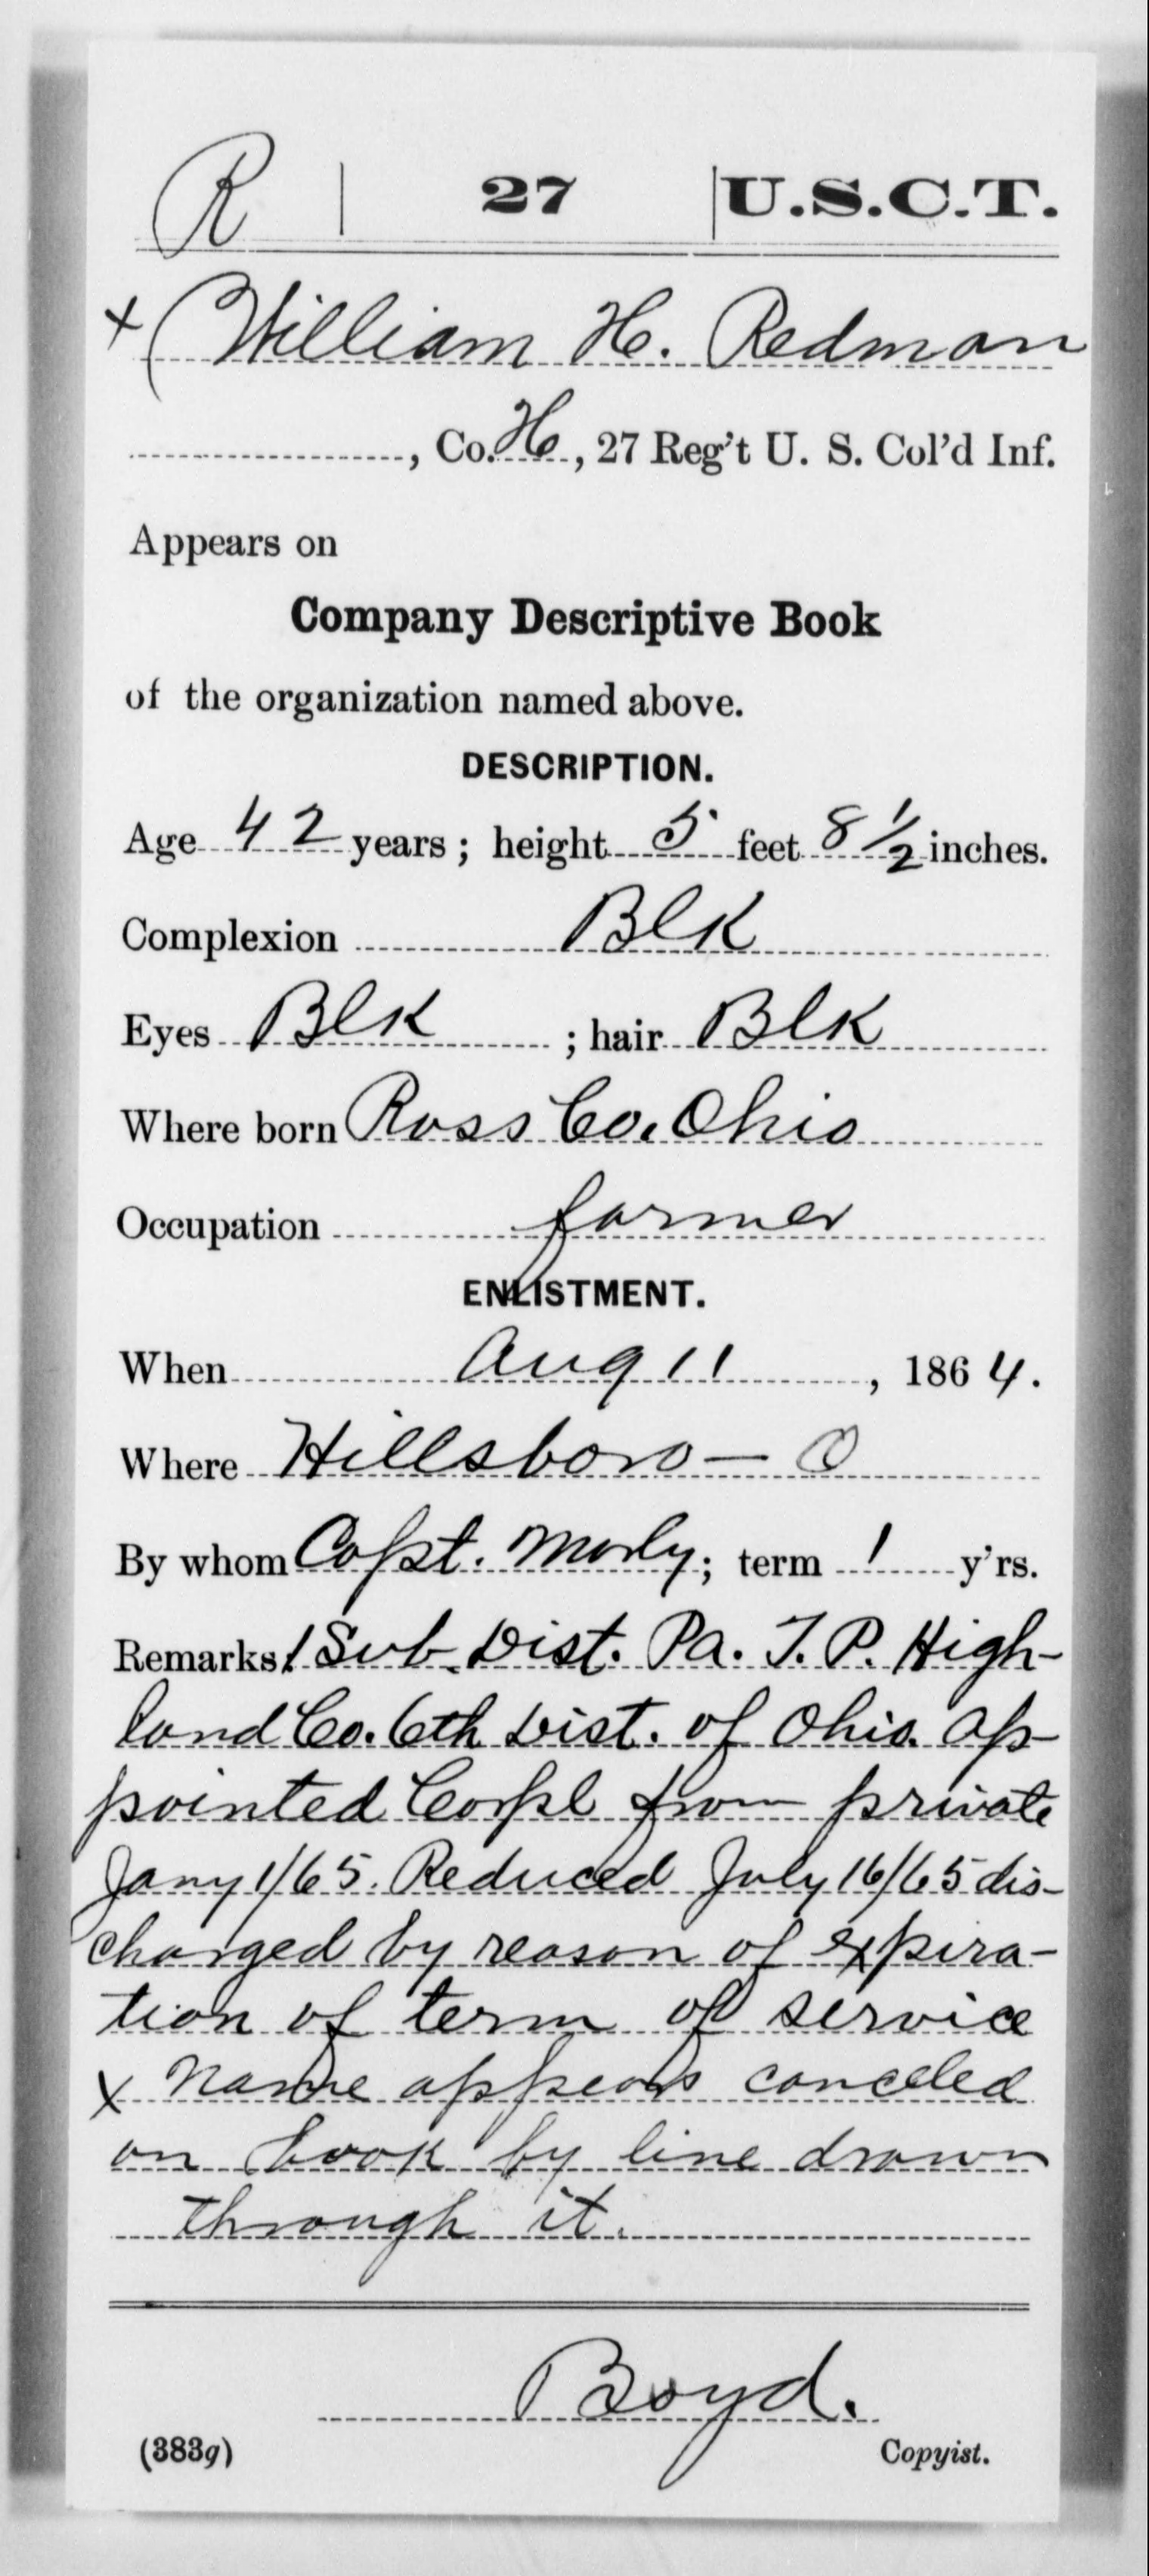 R | 27 | U.S.C.T.
x ( William H. Redman
, Co. H, 27 Reg't U. S. Col'd Inf.
Appears on
Company Descriptive Book
of the organization named above.
DESCRIPTION.
Age 42 years; height 5 feet 8 1/2 inches.
Complexion Blk
Eyes Blk ; hair Blk
Where born Ross Co. Ohio
Occupation farmer
ENLISTMENT.
When Aug 11, 1864.
Where Hillsboro - O
By whom Capt. Morly; term 1 y'rs.
Remarks: 1 Sub. Dist. Pa. T. P. High-
land Co. 6th Dist. of Ohio. Ap-
pointed Corpl from private
Jany 1/65. Reduced July 16/65 dis-
charged by reason of expira-
tion of term of service
x Name appears canceled
on book by line drawn
through it.
Boyd.
(383g) Copyist.